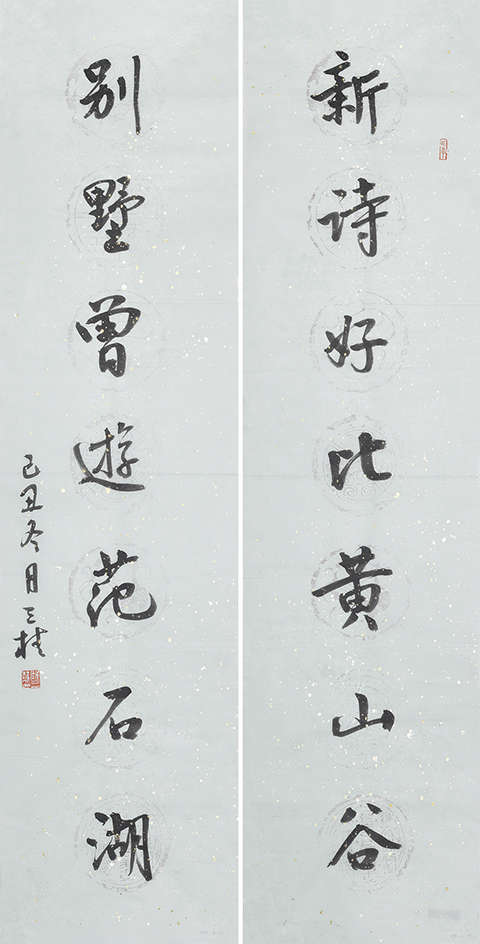 新诗好比黄山谷
别墅曾遊范石湖
己丑冬月三桂